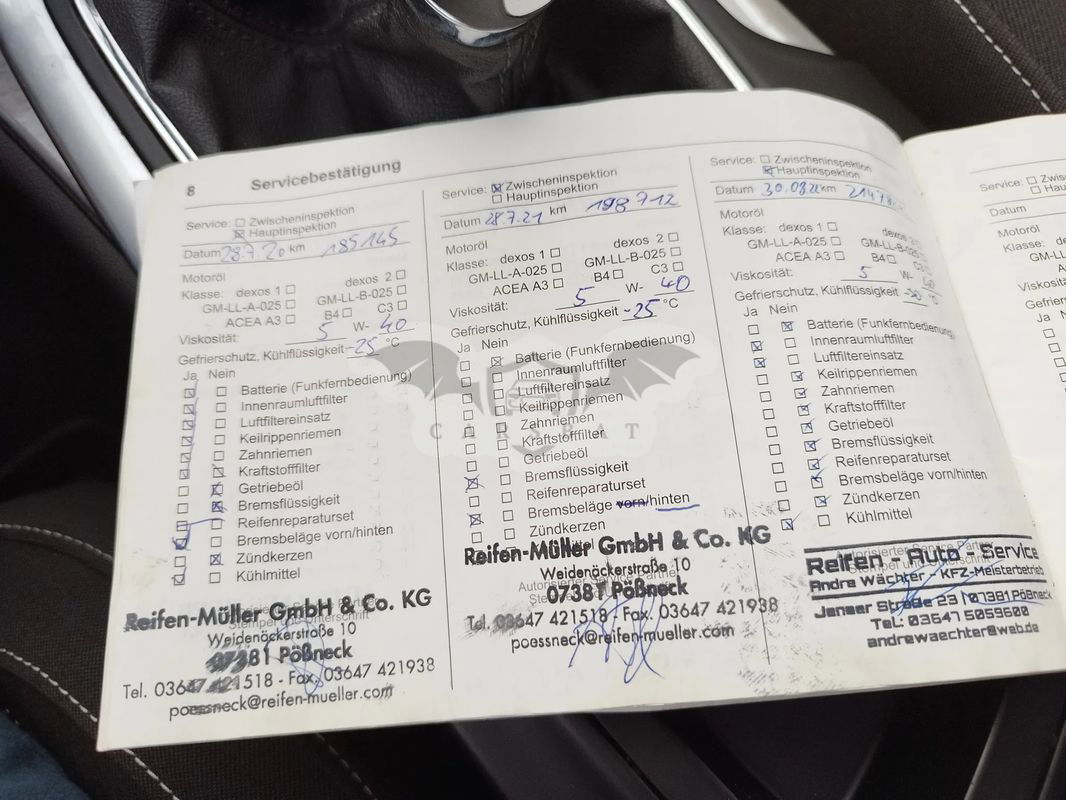 8 Servicebestätigung
Service: Zwischeninspektion
Hauptinspektion
Datum 28.7.20 km 185145
Motoröl
Klasse: dexos 1 dexos 2
GM-LL-A-025 GM-LL-B-025
ACEA A3 B4 C3
Viskosität: 5 W- 40
Gefrierschutz, Kühlflüssigkeit -25 °C
Ja Nein
Batterie (Funkfernbedienung)
Innenraumluftfilter
Luftfiltereinsatz
Keilrippenriemen
Zahnriemen
Kraftstofffilter
Getriebeöl
Bremsflüssigkeit
Reifenreparaturset
Bremsbeläge vorn/hinten
Zündkerzen
Kühlmittel
Reifen-Müller GmbH & Co. KG
Weidenöckerstraße 10
07381 Pößneck
Tel. 03647 421518 - Fax. 03647 421938
poessneck@reifen-mueller.com
Service: Zwischeninspektion
Hauptinspektion
Datum 28.7.21 km 198712
Motoröl
Klasse: dexos 1 dexos 2
GM-LL-A-025 GM-LL-B-025
ACEA A3 B4 C3
Viskosität: 5 W- 40
Gefrierschutz, Kühlflüssigkeit -25 °C
Ja Nein
Batterie (Funkfernbedienung)
Innenraumluftfilter
Luftfiltereinsatz
Keilrippenriemen
Zahnriemen
Kraftstofffilter
Getriebeöl
Bremsflüssigkeit
Reifenreparaturset
Bremsbeläge vorn/hinten
Zündkerzen
Reifen-Müller GmbH & Co. KG
Weidenöckerstraße 10
Autorisierter Service Partner
07381 Pößneck
Tel. 03647 421518 - Fax. 03647 421938
poessneck@reifen-mueller.com
Service: Zwischeninspektion
Hauptinspektion
Datum 30.08.22 km
Motoröl
Klasse: dexos 1 dexos 2
GM-LL-A-025 GM-LL-B-025
ACEA A3 B4 C3
Viskosität: 5 W- 40
Gefrierschutz, Kühlflüssigkeit -30 °C
Ja Nein
Batterie (Funkfernbedienung)
Innenraumluftfilter
Luftfiltereinsatz
Keilrippenriemen
Zahnriemen
Kraftstofffilter
Getriebeöl
Bremsflüssigkeit
Reifenreparaturset
Bremsbeläge vorn/hinten
Zündkerzen
Kühlmittel
Autorisierter Service Partner
Reifen - Auto - Service
Stempel und Unterschrift
Andre Wächter - KFZ-Meisterbetrieb
Jenaer Straße 23 | 07381 Pößneck
Tel.: 03647 5059600
andrewaechter@web.de
Service:
Datum
Motoröl
Klasse:
CARSBAT